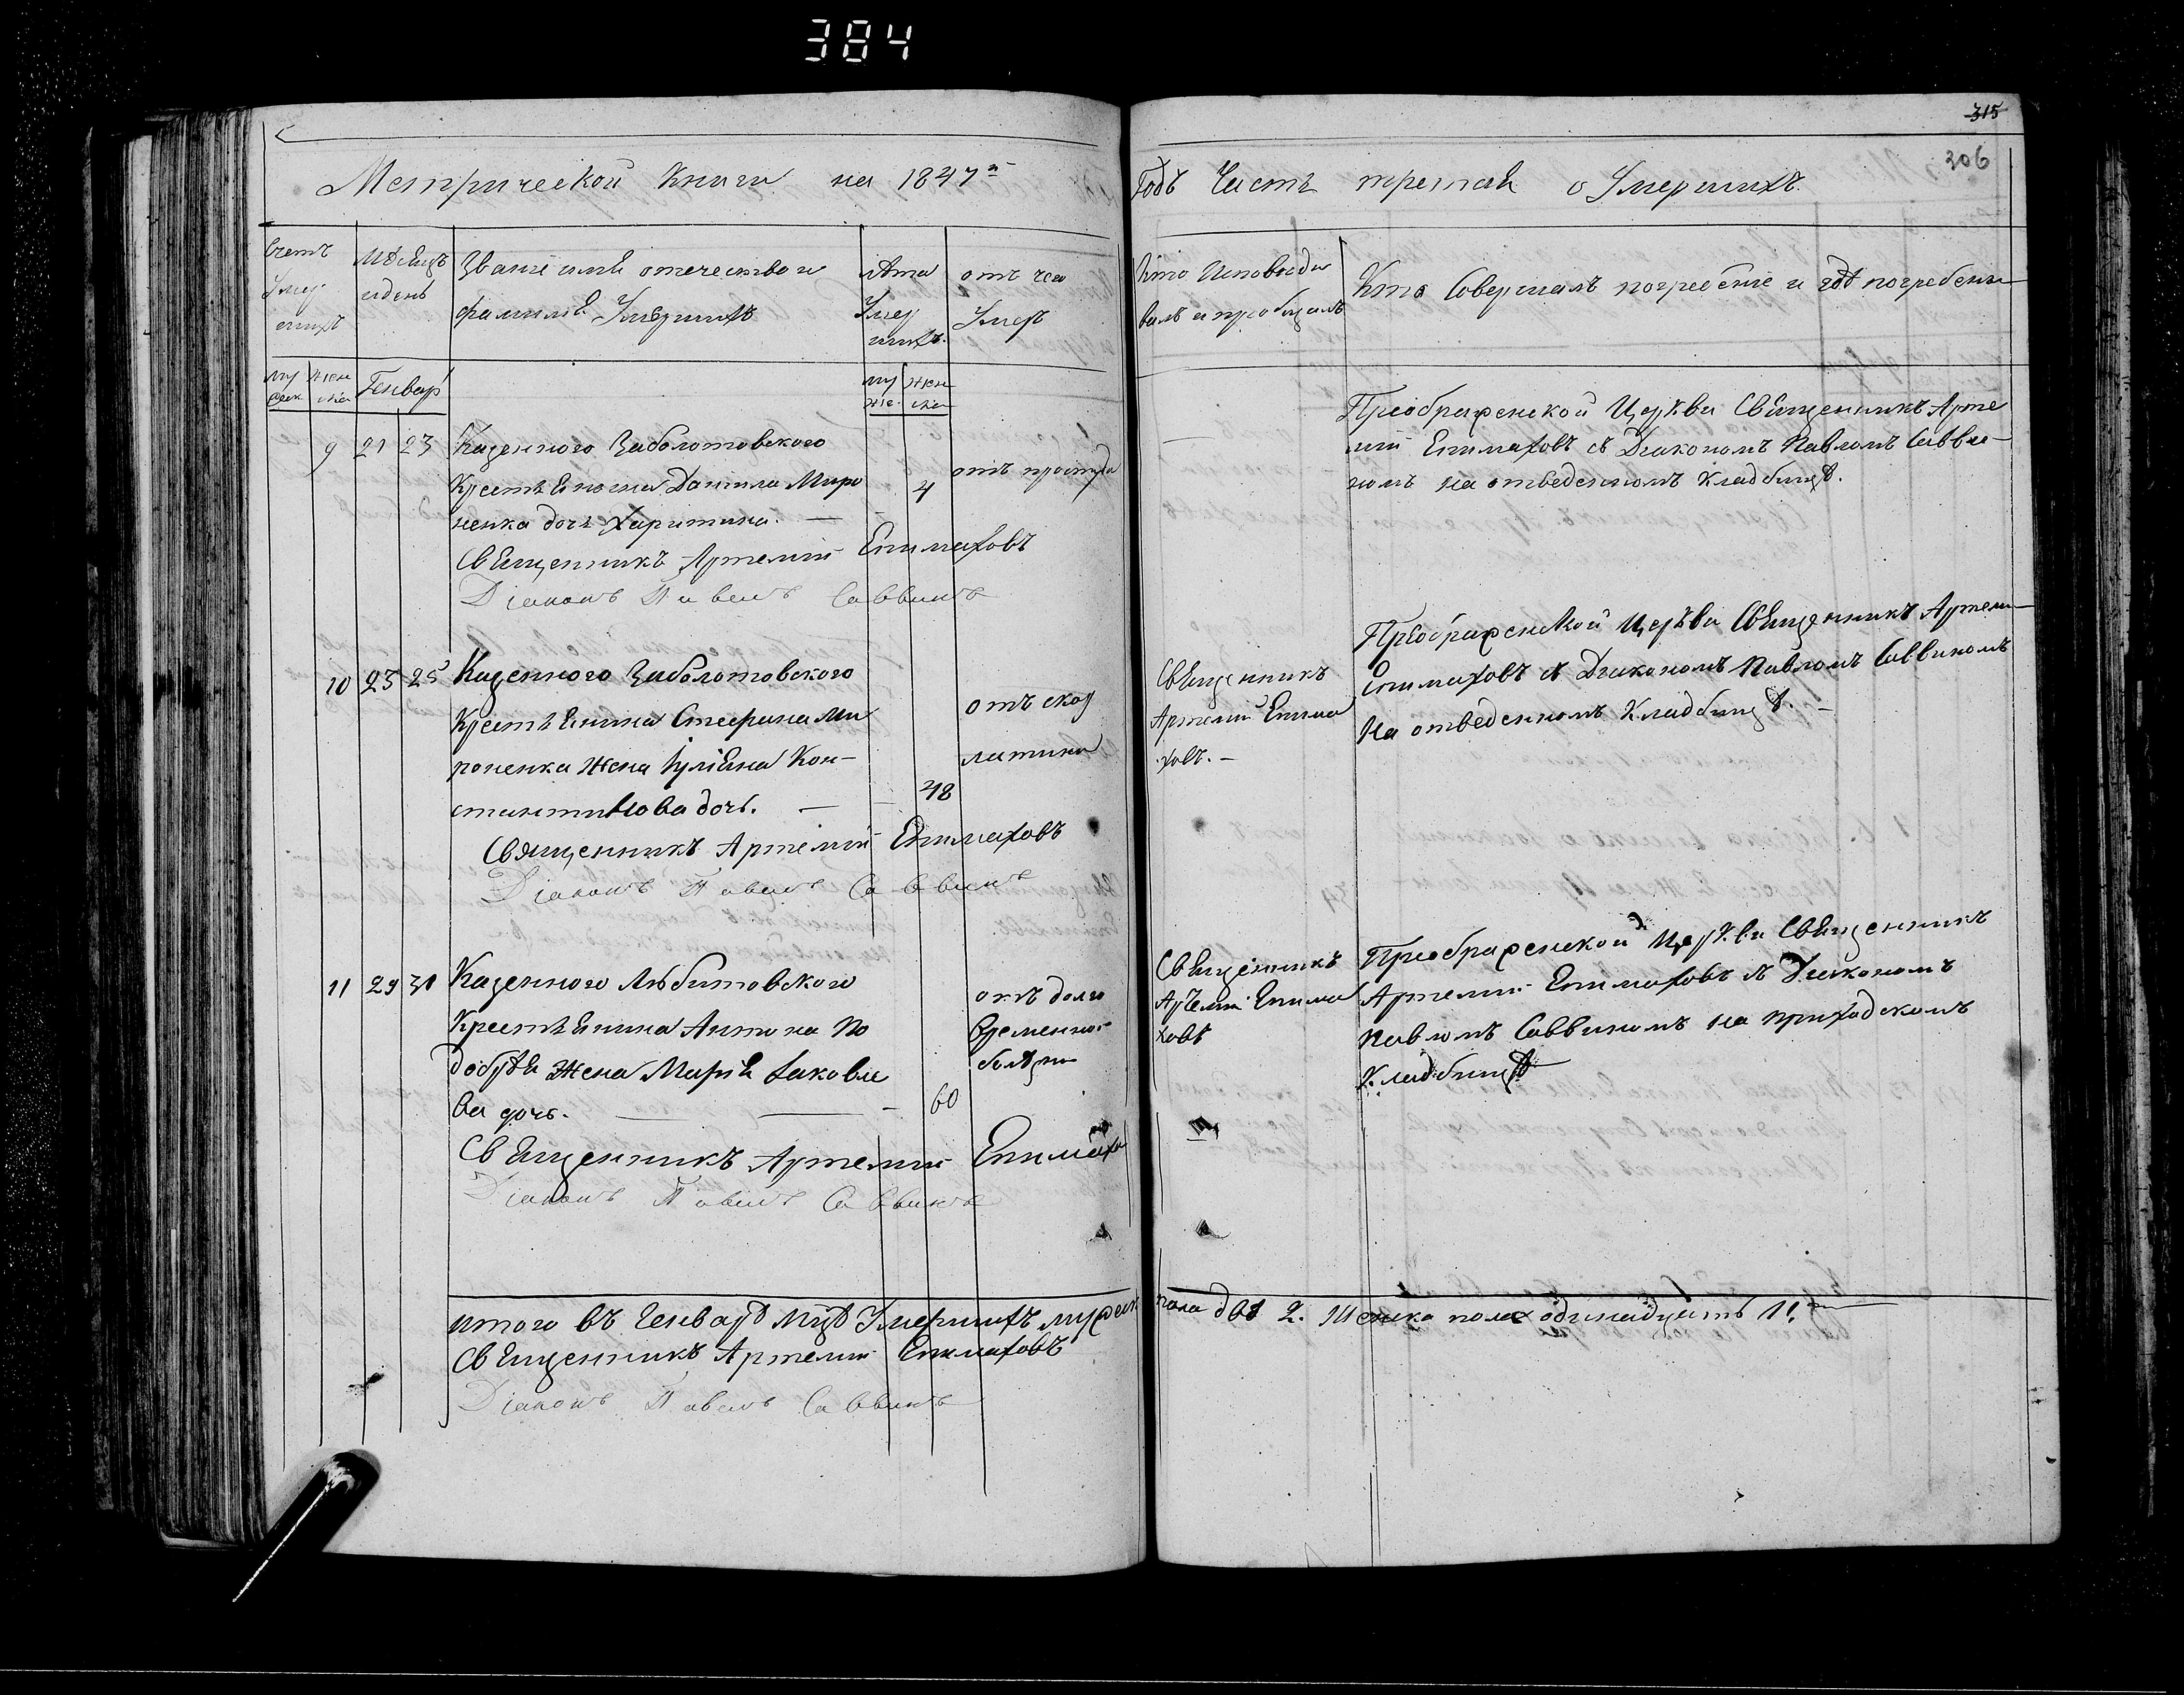 384
315
306
Метрической Книги на 1847й
Годъ Часть третая о Умершихъ.
Счетъ Умер шихъ
Мѣсяцъ и день
Званіе имя отечество и фамилія Умершихъ
лѣта Умер шихъ.
отъ чего Умеръ
Кто Исповѣды валъ и пріобщалъ
Кто Совершалъ погребеніе и гдѣ погребены
му жен
Генвар
му жен
9 21 23 Казеннаго Заболотовского
Крестьянина Данила Миро
ненка дочь Харитина. — 4
отъ простуды
Священникъ Артемій Епимаховъ
Діаконъ Павелъ Саввинъ
Преображенской Церкви Священникъ Арте
мій Епимаховъ съ Диакономъ Павломъ Савви-
номъ на отведенномъ Кладбищѣ.
10 23 25 Казенного Заболотовского
Крестьянина Стефана Ми
роненка Жена Іуліана Кон-
стантинова дочь. — 48
отъ скор
латины
Священникъ Артемій Епимаховъ
Діаконъ Павелъ Саввинъ
Священникъ
Артемій Епима
ховъ. -
Преображенской Церкви Священникъ Артеми
Епимаховъ съ Диакономъ Павломъ Саввиномъ
На отведенномъ Кладбищѣ. -
11 29 31 Казенного Любитовского
Крестьянина Антона По
добѣи Жена Марія Іаковле
ва дочь. — 60
отъ долго
временной
болѣзни
Священникъ Артемій Епимахо
Діаконъ Павелъ Саввинъ
Священникъ
Артемій Епима
ховъ
Преображенской Церкви Священникъ
Артемій Епимаховъ съ Диакономъ
Павломъ Саввиномъ на приходскомъ
Кладбищѣ
итого въ Генварѣ мцѣ Умершихъ мужеск пола два 2. Женска пола одинадцать 11.
Священникъ Артемій Епимаховъ
Діаконъ Павелъ Саввинъ